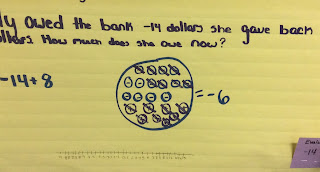 owed the bank -14 dollars she gave back
How much does she owe now?
-14+8
=-6
-14